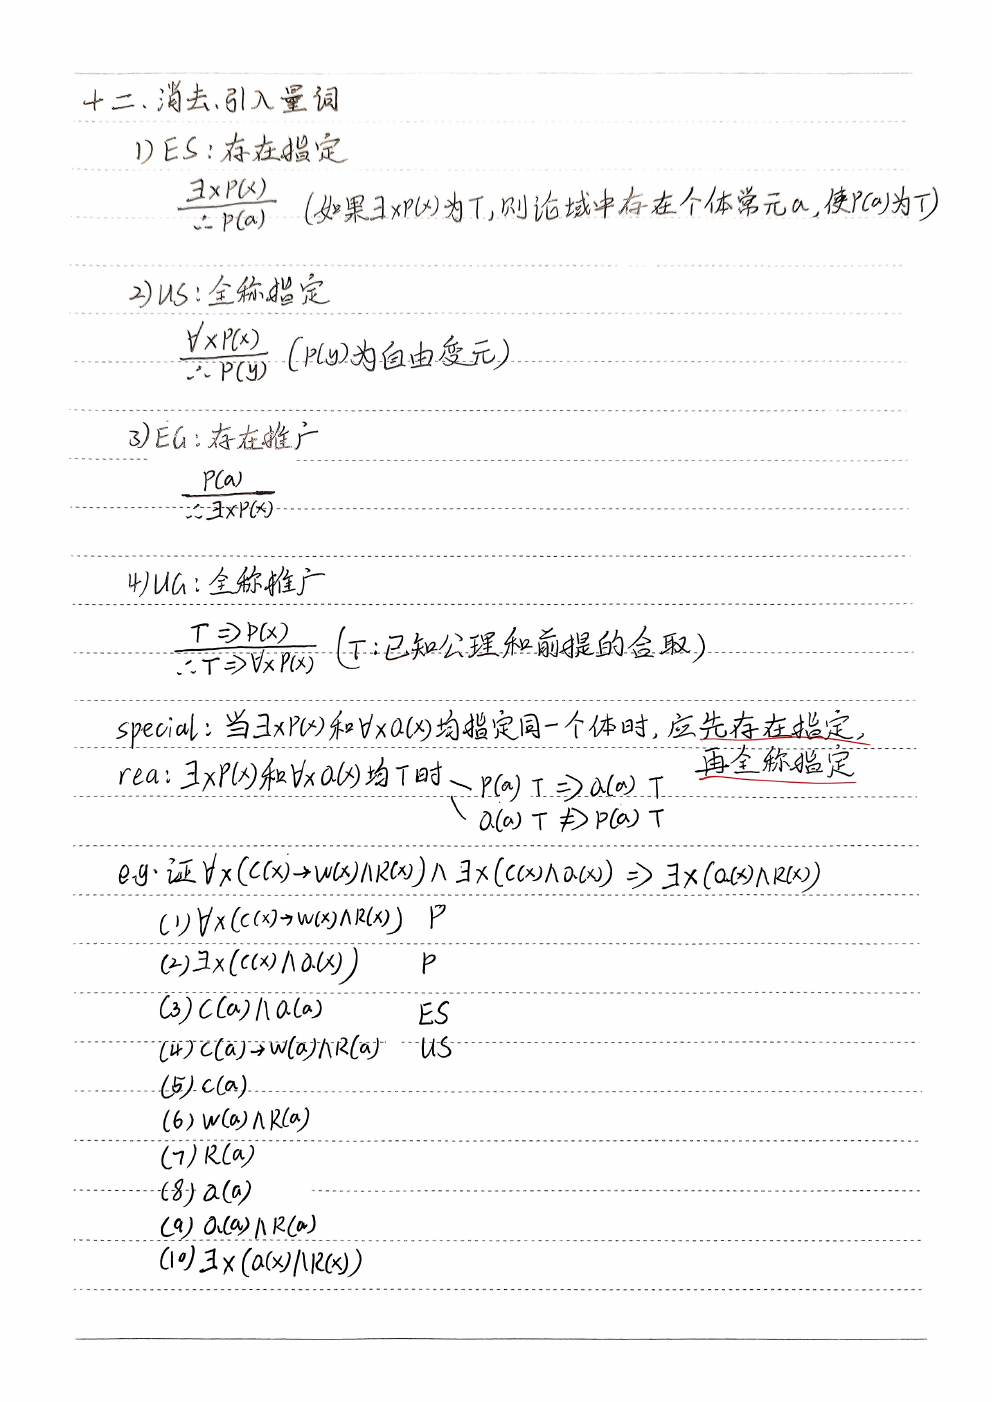 十二、消去、引入量词
1) ES：存在指定
∃xP(x)
∴ P(a) (如果∃xP(x)为T,则论域中存在个体常元a,使P(a)为T)
2) US：全称指定
∀xP(x)
∴ P(y) (P(y)为自由变元)
3) EG：存在推广
P(a)
∴ ∃xP(x)
4) UG：全称推广
T⇒P(x)
∴T⇒∀xP(x) (T:已知公理和前提的合取)
special: 当∃xP(x)和∀xQ(x)均指定同一个体时, 应先存在指定,
再全称指定
rea: ∃xP(x)和∀xQ(x)均T时 P(a) T ⇒ Q(a) T
Q(a) T ⇏ P(a) T
e.g. 证∀x(C(x)→W(x)∧R(x))∧∃x(C(x)∧Q(x)) ⇒ ∃x(Q(x)∧R(x))
(1) ∀x(C(x)→W(x)∧R(x)) P
(2) ∃x(C(x)∧Q(x)) P
(3) C(a)∧Q(a) ES
(4) C(a)→W(a)∧R(a) US
(5) C(a)
(6) W(a)∧R(a)
(7) R(a)
(8) Q(a)
(9) Q(a)∧R(a)
(10) ∃x(Q(x)∧R(x))